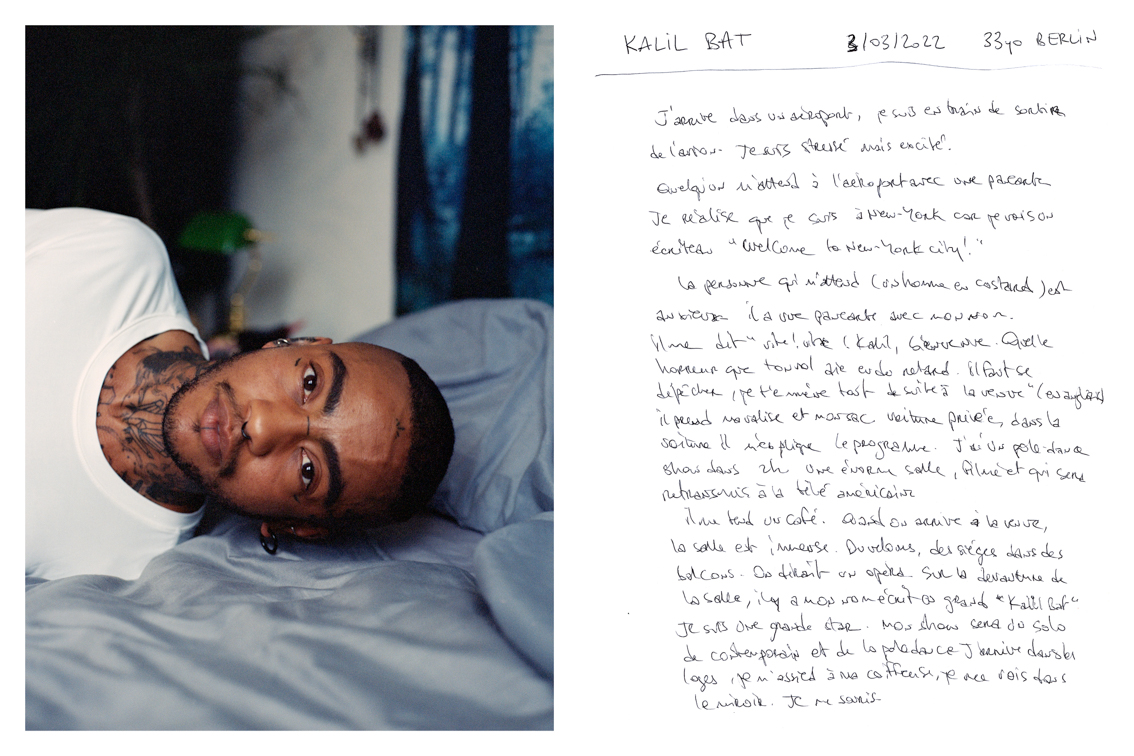 KALIL BAT 3/03/2022 33yo BERLIN
J'arrive dans un aéroport, je suis en train de sortir
de l'avion. Je suis stressé mais excité.
Quelqu'un m'attend à l'aéroport avec une pancarte
Je réalise que je suis à New-York car je vois un
écriteau "Welcome to New-York city!"
La personne qui m'attend (un homme en costard) est
anxieux il a une pancarte avec mon nom.
il me dit "vite! vite! Kalil, bienvenue. Quelle
horreur que ton vol aie eu du retard. Il faut se
dépêcher, je t'emmène tout de suite à la venue" (en anglais)
il prend ma valise et mon sac. voiture privée, dans la
voiture il m'explique le programme. J'ai un pole-dance
show dans 2h une énorme salle, filmé et qui sera
retransmis à la télé américaine
il me tend un café. Quand on arrive à la venue,
la salle est immense. Du velours, des sièges dans des
balcons. On dirait un opéra. Sur la devanture de
la salle, il y a mon nom écrit en grand "Kalil Bat"
Je suis une grande star. Mon show sera du solo
de contemporain et de la pole dance J'arrive dans les
loges, je m'assied à ma coiffeuse, je me vois dans
le miroir. Je me souris.